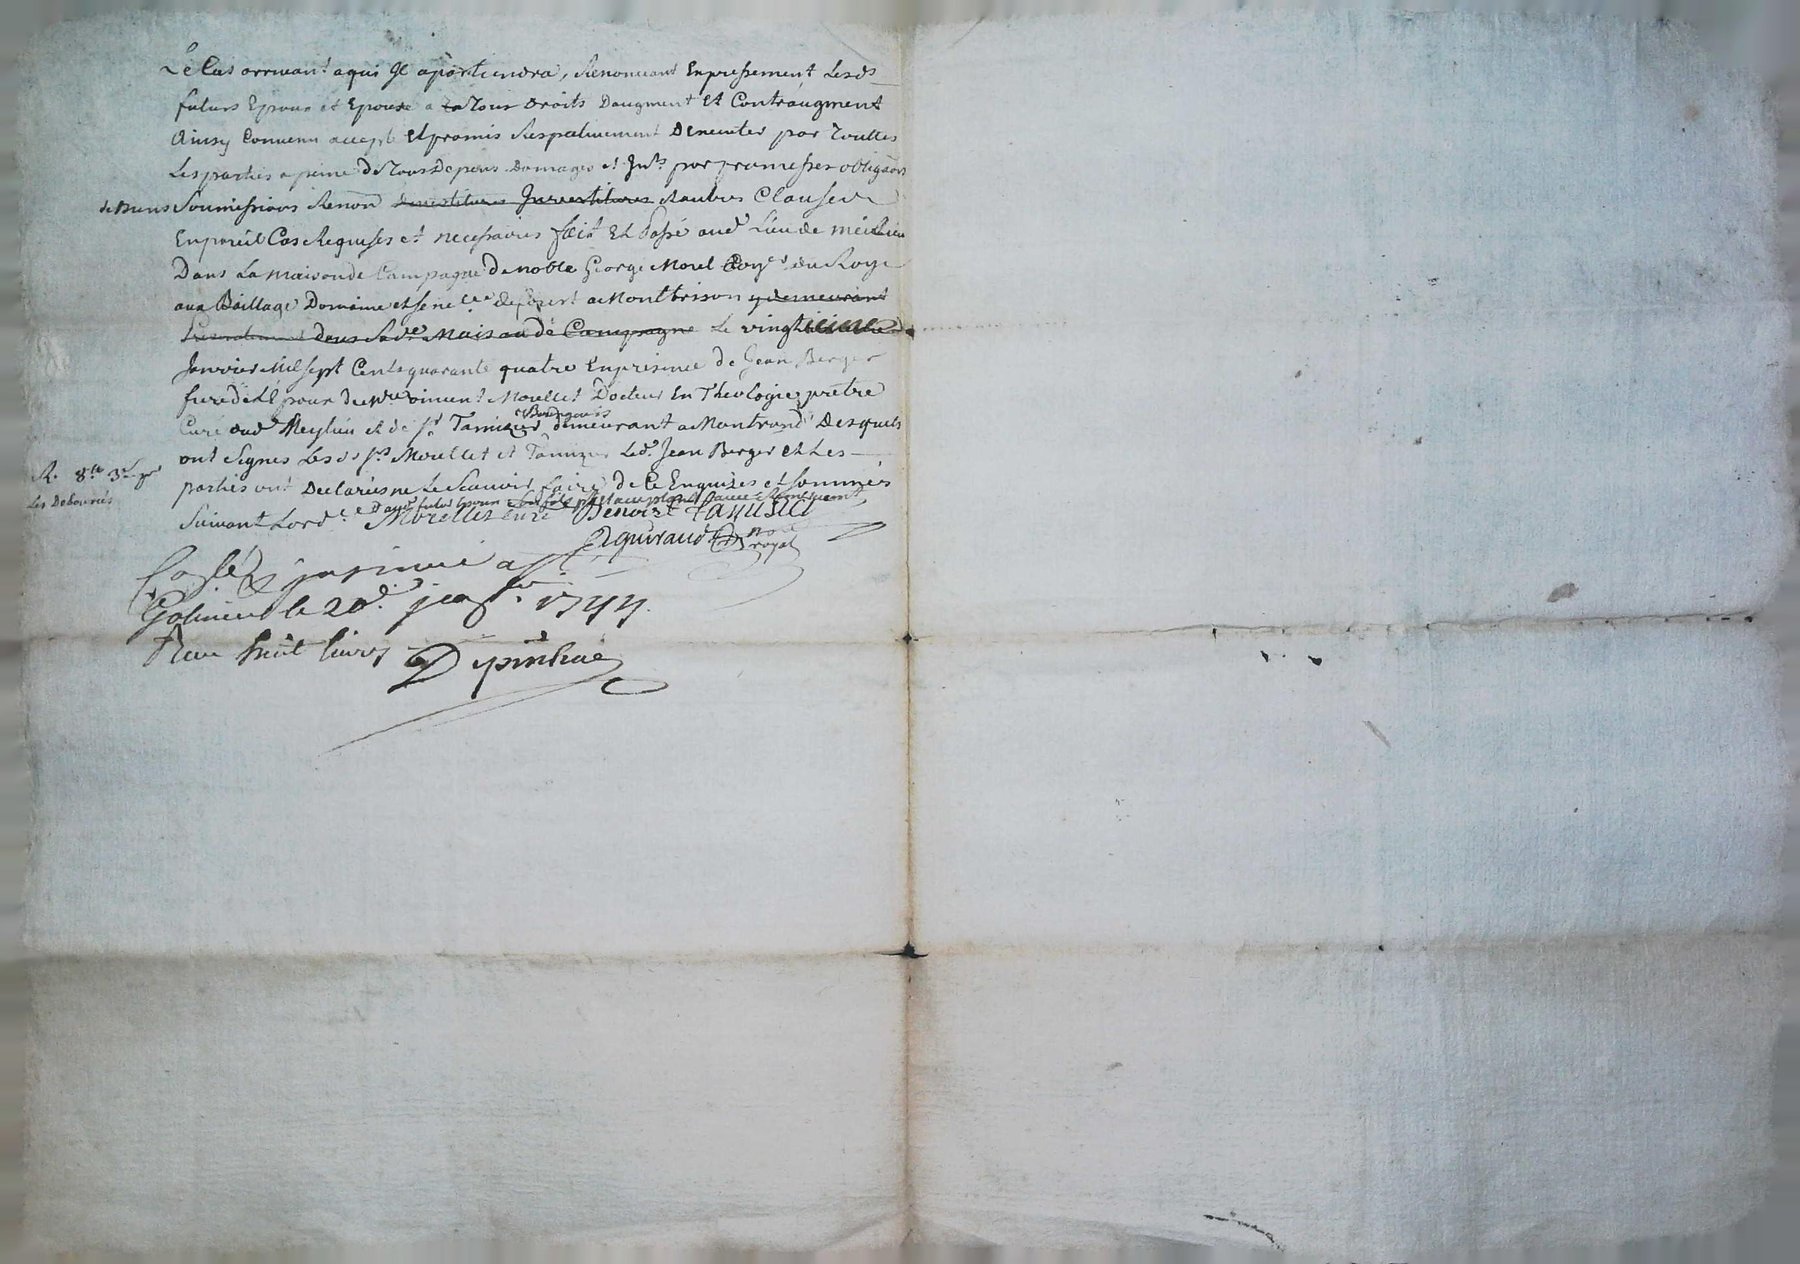 Le Cas arrivant a qui Il apartiendra, Renonceant Expressement Lesds
futurs Epoux et Epouse a Tous Droits Daugment Et Contraugment
Ainsy Convenu accepté Et promis Respectivement Dexecuter par Touttes
Les parties a peine de Tous Depens Domages et Ints. par promesses obligaõns
de Biens Soumissions Renon Investitures &autres Clauses
En pareil Cas Requises et necessaires fait Et Passé aud. Lieu de meilieu
Dans La maison de Campagne de noble George Morel du Roy
aux Baillage Domaine et sene de forest a Montbrison y demeurant
dans Sade. Maison de Campagne Le vingtieme
Janvier Mil Sept Cents quarante quatre En presence de Jean Berger
Morellet Docteur En Theologie prêtre
Curé dud. Meylieu et de Sr. Tamizier Bourgeois demeurant a Montrond Desquels
ont Signes Lesds. Srs. Morellet et Tamizier Led. Jean Berger et Les
parties ont Declarés ne Le Scavoir faire de Ce Enquizes et Sommés
R. 8
Les Debourcés
Suivant Lord.ce Morellet curé Benoist Tamisier
Eguiraud no.re royal
insinué a St.
Galmier le 20e. jeanr. 1744.
Recu huit livres Depinhac